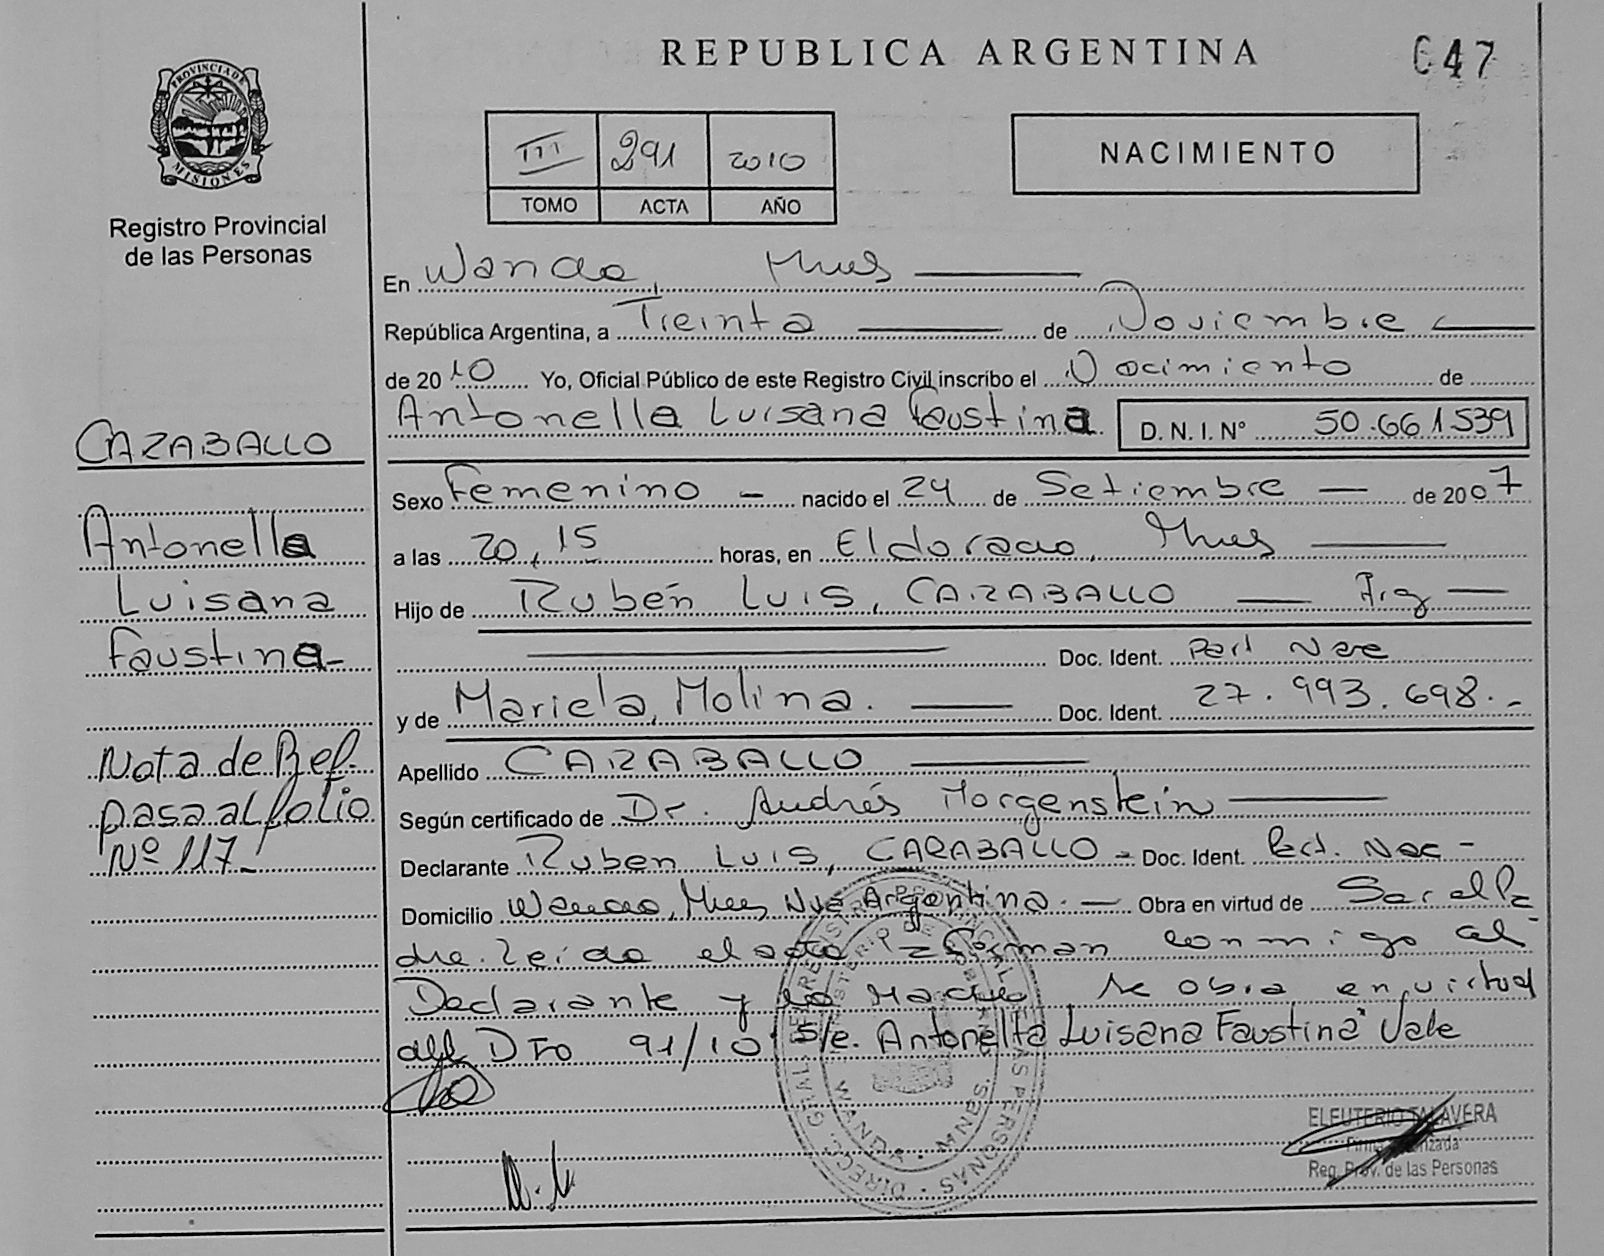 REPUBLICA ARGENTINA
047
PROVINCIA DE MISIONES
Registro Provincial
de las Personas
III 291 2010
TOMO ACTA AÑO
NACIMIENTO
En Wanda, Mnes
República Argentina, a Treinta de Noviembre
de 2010 Yo, Oficial Público de este Registro Civil inscribo el Nacimiento de
Antonella Luisana Faustina D.N.I. N° 50.661.539
Sexo Femenino - nacido el 24 de Setiembre de 2007
a las 20,15 horas, en Eldorado, Mnes
Hijo de Rubén Luis, CARABALLO Arg
Doc. Ident. Ced Nac
y de Mariela, Molina. Doc. Ident. 27.993.698.-
Apellido CARABALLO
Según certificado de Dr. Andrés Morgenstein
Declarante Ruben Luis, CARABALLO - Doc. Ident. Ced. Nac -
Domicilio Wanda, Mnes Nva Argentina. Obra en virtud de Ser el Pa
dre. Leída el acta firman conmigo el
Declarante y la Madre se obra en virtud
del Dto 91/10 S/e. Antonella Luisana Faustina" Vale
CARABALLO
Antonella
Luisana
Faustina-
Nota de Ref.
pasa al folio
Nº 117-
DIRECC. GRAL. DEL REGISTRO PROVINCIAL DE LAS PERSONAS
WANDA - MNES.
ELEUTERIO TALAVERA
Firma Autorizada
Reg. Prov. de las Personas